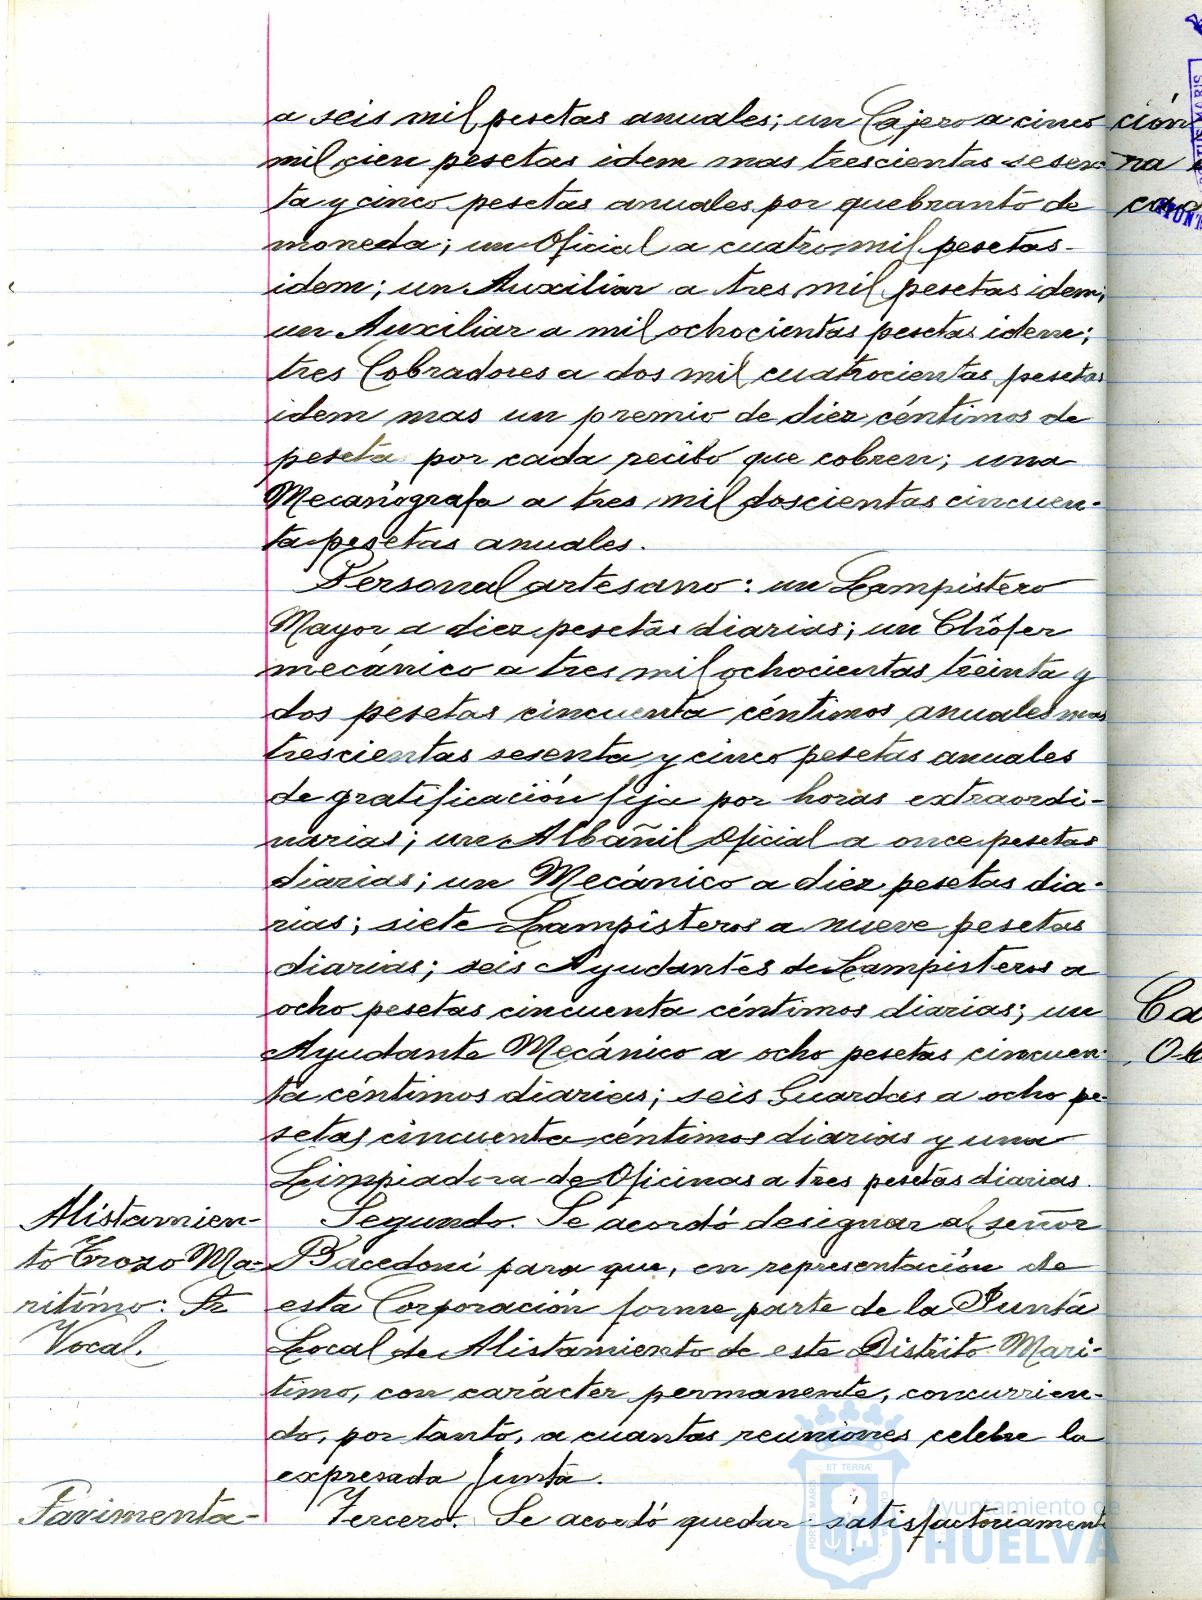 a seis mil pesetas anuales; un Cajero a cinco
mil cien pesetas idem mas trescientas sesen-
ta y cinco pesetas anuales por quebranto de
moneda; un Oficial a cuatro mil pesetas
idem; un Auxiliar a tres mil pesetas idem;
un Auxiliar a mil ochocientas pesetas idem;
tres Cobradores a dos mil cuatrocientas pesetas
idem mas un premio de diez céntimos de
peseta por cada recibo que cobren; una
Mecanografa a tres mil doscientas cincuen-
ta pesetas anuales.
Personal artesano: un Lampistero
Mayor a diez pesetas diarias; un Chófer
mecánico a tres mil ochocientas treinta y
dos pesetas cincuenta céntimos anuales mas
trescientas sesenta y cinco pesetas anuales
de gratificación fija por horas extraordi-
narias; un Albañil Oficial a once pesetas
diarias; un Mecánico a diez pesetas dia-
rias; siete Lampisteros a nueve pesetas
diarias; seis Ayudantes de Lampisteros a
ocho pesetas cincuenta céntimos diarias; un
Ayudante Mecánico a ocho pesetas cincuen-
ta céntimos diarias; seis Guardas a ocho pe-
setas cincuenta céntimos diarias y una
Limpiadora de Oficinas a tres pesetas diarias.
Alistamien-
to Trozo Ma-
ritimo: Sr
Vocal.
Segundo. Se acordó designar al señor
Bacedoni para que, en representación de
esta Corporación forme parte de la Junta
Local de Alistamiento de este Distrito Mari-
timo, con carácter permanente, concurrien-
do, por tanto, a cuantas reuniones celebre la
expresada Junta.
Pavimenta-
Tercero. Se acordó quedar satisfactoriament
ción
na
Ca
Ayuntamiento de
HUELVA